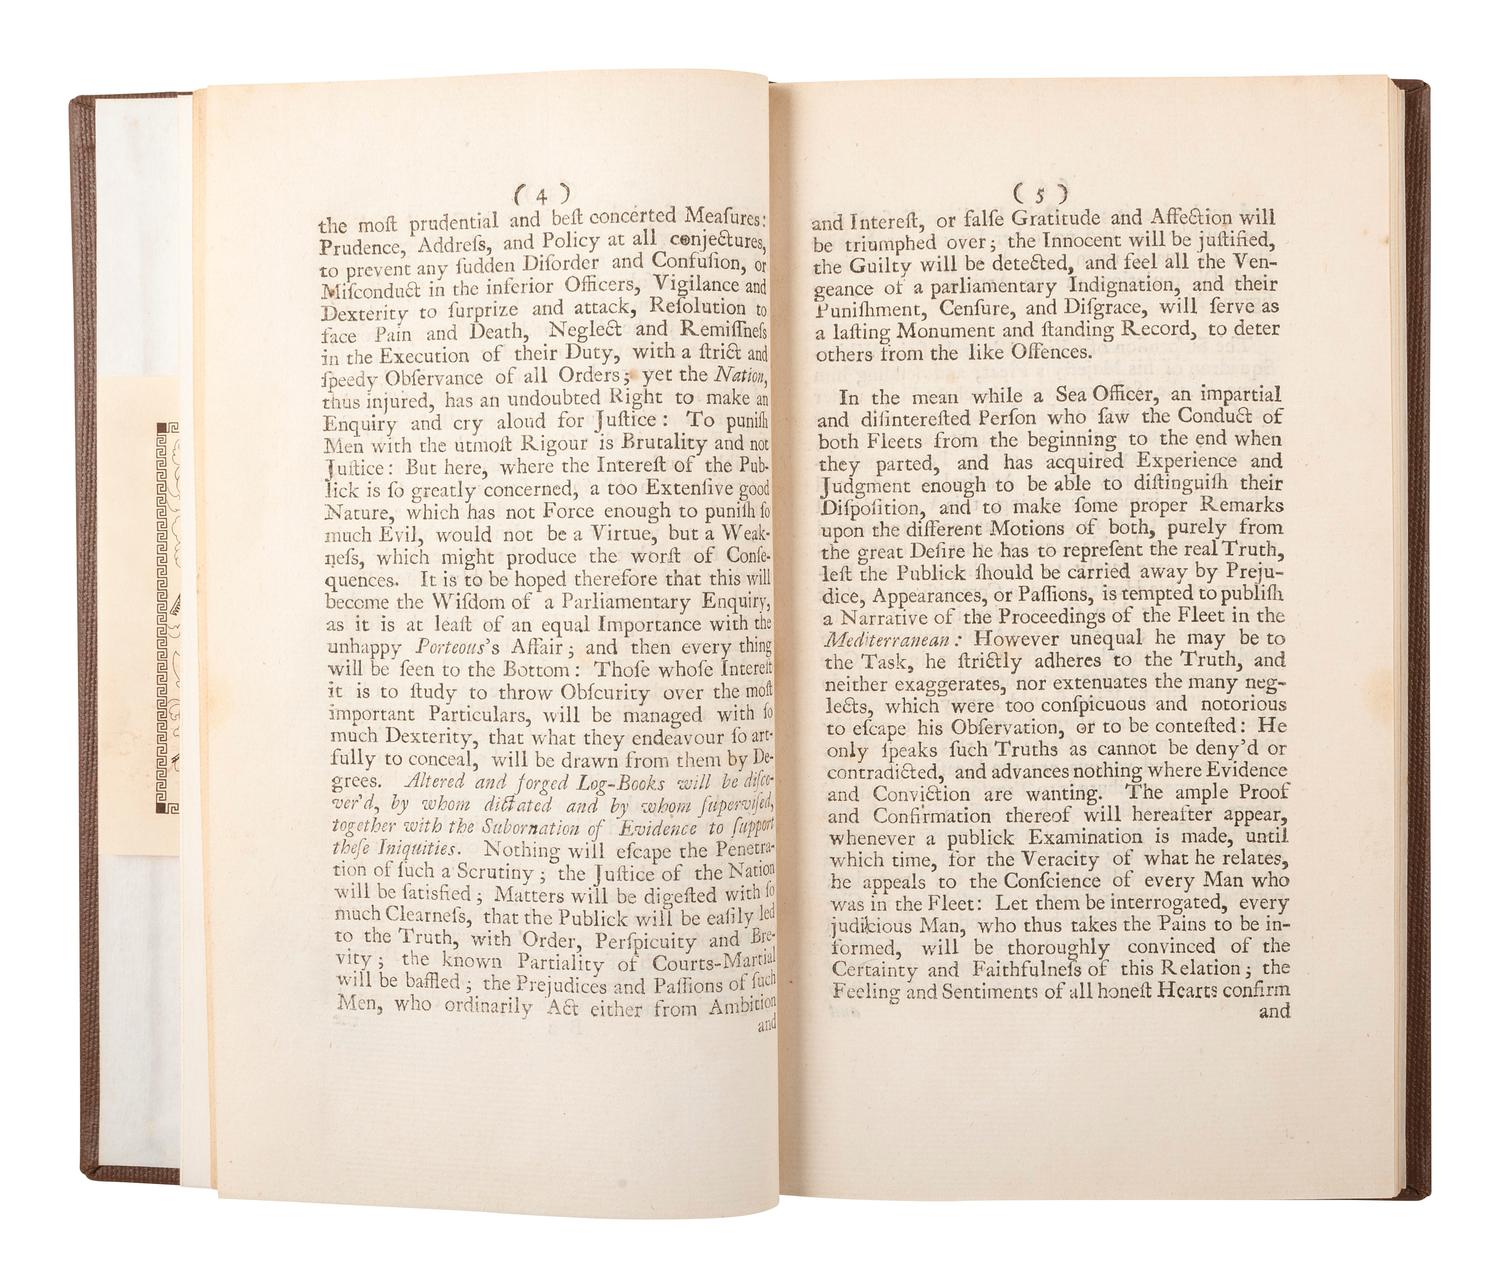 ( 4 )
the moſt prudential and beſt concerted Meaſures:
Prudence, Addreſs, and Policy at all conjectures,
to prevent any ſudden Diſorder and Confuſion, or
Miſconduct in the inferior Officers, Vigilance and
Dexterity to ſurprize and attack, Reſolution to
face Pain and Death, Neglect and Remiſſneſs
in the Execution of their Duty, with a ſtrict and
ſpeedy Obſervance of all Orders; yet the Nation,
thus injured, has an undoubted Right to make an
Enquiry and cry aloud for Juſtice: To puniſh
Men with the utmoſt Rigour is Brutality and not
Juſtice: But here, where the Intereſt of the Pub-
lick is ſo greatly concerned, a too Extenſive good
Nature, which has not Force enough to puniſh ſo
much Evil, would not be a Virtue, but a Weak-
neſs, which might produce the worſt of Conſe-
quences. It is to be hoped therefore that this will
become the Wiſdom of a Parliamentary Enquiry,
as it is at leaſt of an equal Importance with the
unhappy Porteous's Affair; and then every thing
will be ſeen to the Bottom: Thoſe whoſe Intereſt
it is to ſtudy to throw Obſcurity over the moſt
important Particulars, will be managed with ſo
much Dexterity, that what they endeavour ſo art-
fully to conceal, will be drawn from them by De-
grees. Altered and forged Log-Books will be diſco-
ver'd, by whom dictated and by whom ſuperviſed,
together with the Subornation of Evidence to ſupport
theſe Iniquities. Nothing will eſcape the Penetra-
tion of ſuch a Scrutiny; the Juſtice of the Nation
will be ſatisfied; Matters will be digeſted with ſo
much Clearneſs, that the Publick will be eaſily led
to the Truth, with Order, Perſpicuity and Bre-
vity; the known Partiality of Courts-Martial
will be baffled; the Prejudices and Paſſions of ſuch
Men, who ordinarily Act either from Ambition
and
( 5 )
and Intereſt, or falſe Gratitude and Affection will
be triumphed over; the Innocent will be juſtified,
the Guilty will be detected, and feel all the Ven-
geance of a parliamentary Indignation, and their
Puniſhment, Cenſure, and Diſgrace, will ſerve as
a laſting Monument and ſtanding Record, to deter
others from the like Offences.
In the mean while a Sea Officer, an impartial
and diſintereſted Perſon who ſaw the Conduct of
both Fleets from the beginning to the end when
they parted, and has acquired Experience and
Judgment enough to be able to diſtinguiſh their
Diſpoſition, and to make ſome proper Remarks
upon the different Motions of both, purely from
the great Deſire he has to repreſent the real Truth,
leſt the Publick ſhould be carried away by Preju-
dice, Appearances, or Paſſions, is tempted to publiſh
a Narrative of the Proceedings of the Fleet in the
Mediterranean: However unequal he may be to
the Task, he ſtrictly adheres to the Truth, and
neither exaggerates, nor extenuates the many neg-
lects, which were too conſpicuous and notorious
to eſcape his Obſervation, or to be conteſted: He
only ſpeaks ſuch Truths as cannot be deny'd or
contradicted, and advances nothing where Evidence
and Conviction are wanting. The ample Proof
and Confirmation thereof will hereafter appear,
whenever a publick Examination is made, until
which time, for the Veracity of what he relates,
he appeals to the Conſcience of every Man who
was in the Fleet: Let them be interrogated, every
judicious Man, who thus takes the Pains to be in-
formed, will be thoroughly convinced of the
Certainty and Faithfulneſs of this Relation; the
Feeling and Sentiments of all honeſt Hearts confirm
and